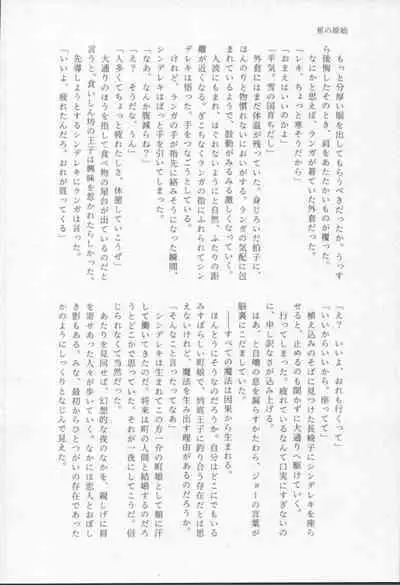 煎の姫始
もっと分厚い服を出してもらうべきだったか。うっす
ら後悔したそのとき、肩をあたたかいものが覆った。
なにかと思えば、ランガが着ていた外套だった。
「レキ、ちょっと寒そうだから」
「おまえはいいのかよ」
「平気。雪の国育ちだし」
外套にはまだ体温が残っていた。身じろいだ拍子に、
ほんのりと物慣れないにおいがする。ランガの気配に包
まれているようで、鼓動がみるみる激しくなっていく。
人波にもまれ、はぐれないようにと自然、ふたりの距
離が近くなる。ぎこちなくランガの指にふれられてシン
デレキは悟った。手をつなごうとしている。
けれど、ランガの手が指先に絡みそうになった瞬間、
シンデレキはぱっと手を引いてしまった。
「なあ、なんか腹減らね？」
「え？　そうだな、うん」
「人多くてちょっと疲れたしさ、休憩していこうぜ」
大通りのほうを指して食べ物の屋台が出ているのだと
言うと、食いしん坊の王子は興味を惹かれたらしかった。
先導しようとするシンデレキにランガは言った。
「いいよ、疲れたんだろ。おれが買ってくる」
「え？　いいよ、おれも行くって」
「いいからいいから。座ってて」
植え込みのそばに見つけた長椅子にシンデレキを座ら
せると、止めるのも聞かずに大通りへ駆けていく。
行ってしまった。疲れているなんて口実にすぎないの
に、申し訳なさが込み上げる。
はあ、と自嘲の息を漏らすかたわら、ジョーの言葉が
脳裏にこだましていた。
――すべての魔法は因果から生まれる。
ほんとうにそうなのだろうか。自分はどこにでもいる
みすぼらしい町娘で、到底王子に釣り合う存在だとは思
えないけれど、魔法を生み出す理由があるのだろうか。
「そんなこと言ったってなあ」
シンデレキは生まれてこの方一介の町娘として額に汗
して働いてきたのだ。将来は町の人間と結婚するのだろ
うとどこかで思っていた。それが一夜にしてこうだ。信
じられなくて当然だった。
あたりを見回せば、幻想的な夜のなかを、親しげに肩
を寄せあった人々が歩いていく。なかには恋人とおぼし
き影もある。みな、最初からひとつがいの存在であった
かのようにしっくりとなじんで見えた。